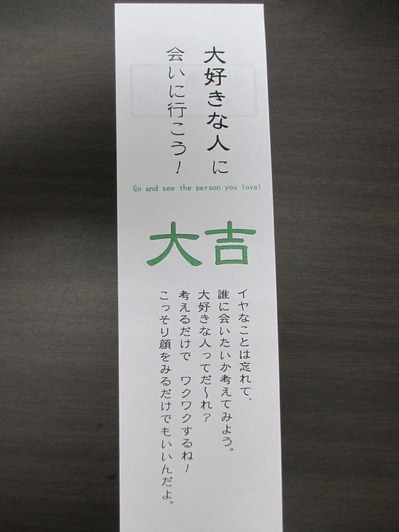 大好きな人に
会いに行こう！
Go and see the person you love!
大吉
イヤなことは忘れて、
誰に会いたいか考えてみよう。
大好きな人ってだ～れ？
考えるだけで ワクワクするね！
こっそり顔をみるだけでもいいんだよ。